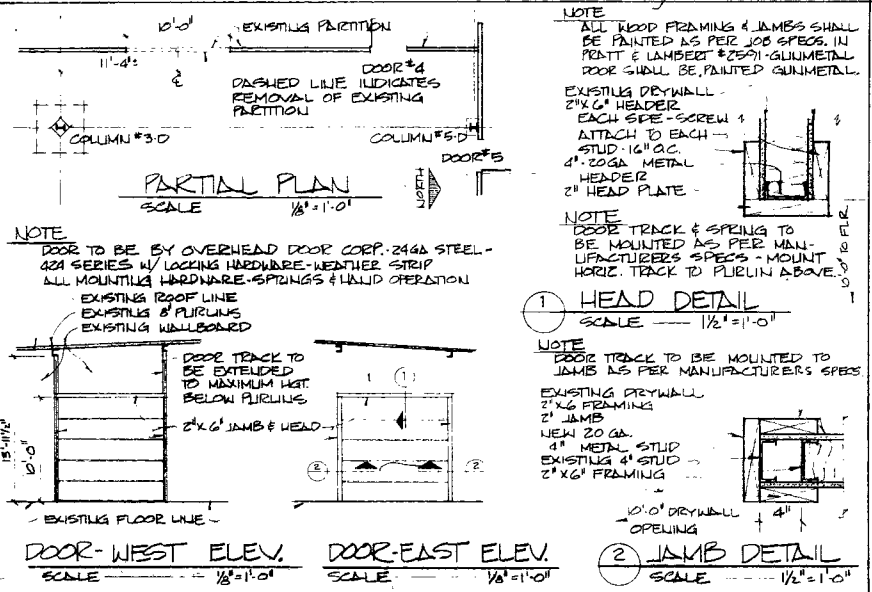 10'-0"
EXISTING PARTITION
11'-4"±
DOOR #4
DASHED LINE INDICATES
REMOVAL OF EXISTING
PARTITION
COLUMN #3-D
COLUMN #5-D
DOOR #5
PARTIAL PLAN
SCALE 1/8"=1'-0"
NOTE
DOOR TO BE BY OVERHEAD DOOR CORP.-24GA STEEL-
424 SERIES W/ LOCKING HARDWARE-WEATHER STRIP
ALL MOUNTING HARDWARE-SPRINGS & HAND OPERATION
EXISTING ROOF LINE
EXISTING 8" PURLINS
EXISTING WALLBOARD
DOOR TRACK TO
BE EXTENDED
TO MAXIMUM HGT.
BELOW PURLINS
2"X6" JAMB & HEAD
1
1
2
2
13'-11 1/2"
10'-0"
EXISTING FLOOR LINE
DOOR-WEST ELEV.
SCALE 1/8"=1'-0"
DOOR-EAST ELEV.
SCALE 1/8"=1'-0"
NOTE
ALL WOOD FRAMING & JAMBS SHALL
BE PAINTED AS PER JOB SPECS. IN
PRATT & LAMBERT #2591-GUNMETAL
DOOR SHALL BE PAINTED GUNMETAL.
EXISTING DRYWALL
2"X6" HEADER
EACH SIDE-SCREW
ATTACH TO EACH
STUD-16" O.C.
4"-20GA METAL
HEADER
2" HEAD PLATE
NOTE
DOOR TRACK & SPRING TO
BE MOUNTED AS PER MAN-
UFACTURERS SPECS-MOUNT
HORIZ. TRACK TO PURLIN ABOVE.
10'-0" TO FLR
1 HEAD DETAIL
SCALE 1 1/2"=1'-0"
NOTE
DOOR TRACK TO BE MOUNTED TO
JAMB AS PER MANUFACTURERS SPECS
EXISTING DRYWALL
2"X6 FRAMING
2" JAMB
NEW 20 GA.
4" METAL STUD
EXISTING 4" STUD
2"X6" FRAMING
10'-0" DRYWALL
OPENING
4"
2 JAMB DETAIL
SCALE 1 1/2"=1'-0"